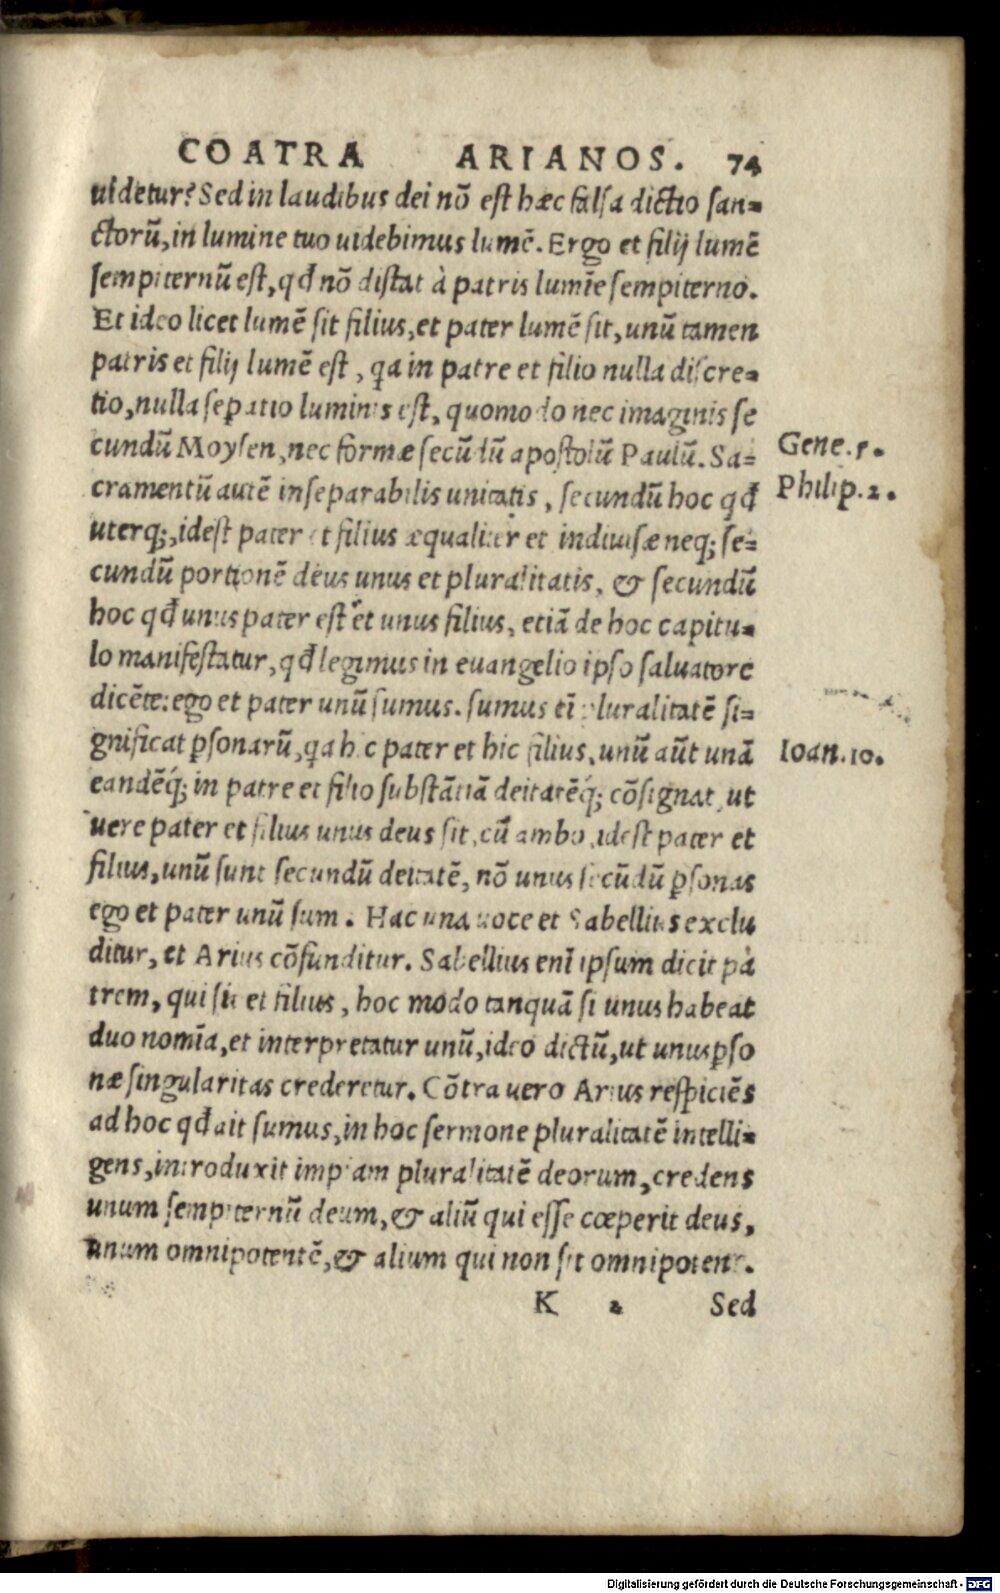 COATRA ARIANOS. 74
uidetur? Sed in laudibus dei nō est hæc falsa dictio san-
ctorū, in lumine tuo uidebimus lumē. Ergo et filij lumē
sempiternū est, qđ nō distat à patris lumīe sempiterno.
Et ideo licet lumē sit filius, et pater lumē sit, unū tamen
patris et filij lumē est, qa in patre et filio nulla discre-
tio, nulla seꝑatio luminis est, quomodo nec imaginis se
cundū Moysen, nec formæ secūdū apostolū Paulū. Sa-
Gene. 5.
cramentū autē inseparabilis unitatis, secundū hoc qđ
Philip. 2.
uterq;, idest pater et filius æqualiter et indiuisæ neq; se-
cundū portionē deus unus et pluralitatis, & secundū
hoc qđ unus pater est et unus filius, etiā de hoc capitu-
lo manifestatur, qđ legimus in euangelio ipso saluatore
dicēte: ego et pater unū sumus. sumus eī pluralitatē si-
gnificat ꝑsonarū, qa hic pater et hic filius, unū aūt unā
Ioan. 10.
eandēq́; in patre et filio substātiā deitatēq́; cōsignat, ut
uere pater et filius unus deus sit, cū ambo, idest pater et
filius, unū sunt secundū deitatē, nō unus secūdū ꝑsonas
ego et pater unū sum. Hac una uoce et Sabellius exclu
ditur, et Arius cōfunditur. Sabellius enī ipsum dicit pa
trem, qui sit et filius, hoc modo tanquā si unus habeat
duo nomīa, et interpretatur unū, ideo dictū, ut unius ꝑso
næ singularitas crederetur. Cōtra uero Arius respiciēs
ad hoc qđ ait sumus, in hoc sermone pluralitatē intelli-
gens, introduxit impiam pluralitatē deorum, credens
unum sempiternū deum, & aliū qui esse cœperit deus,
unum omnipotentē, & alium qui non sit omnipotens.
K 2 Sed
Digitalisierung gefördert durch die Deutsche Forschungsgemeinschaft - DFG